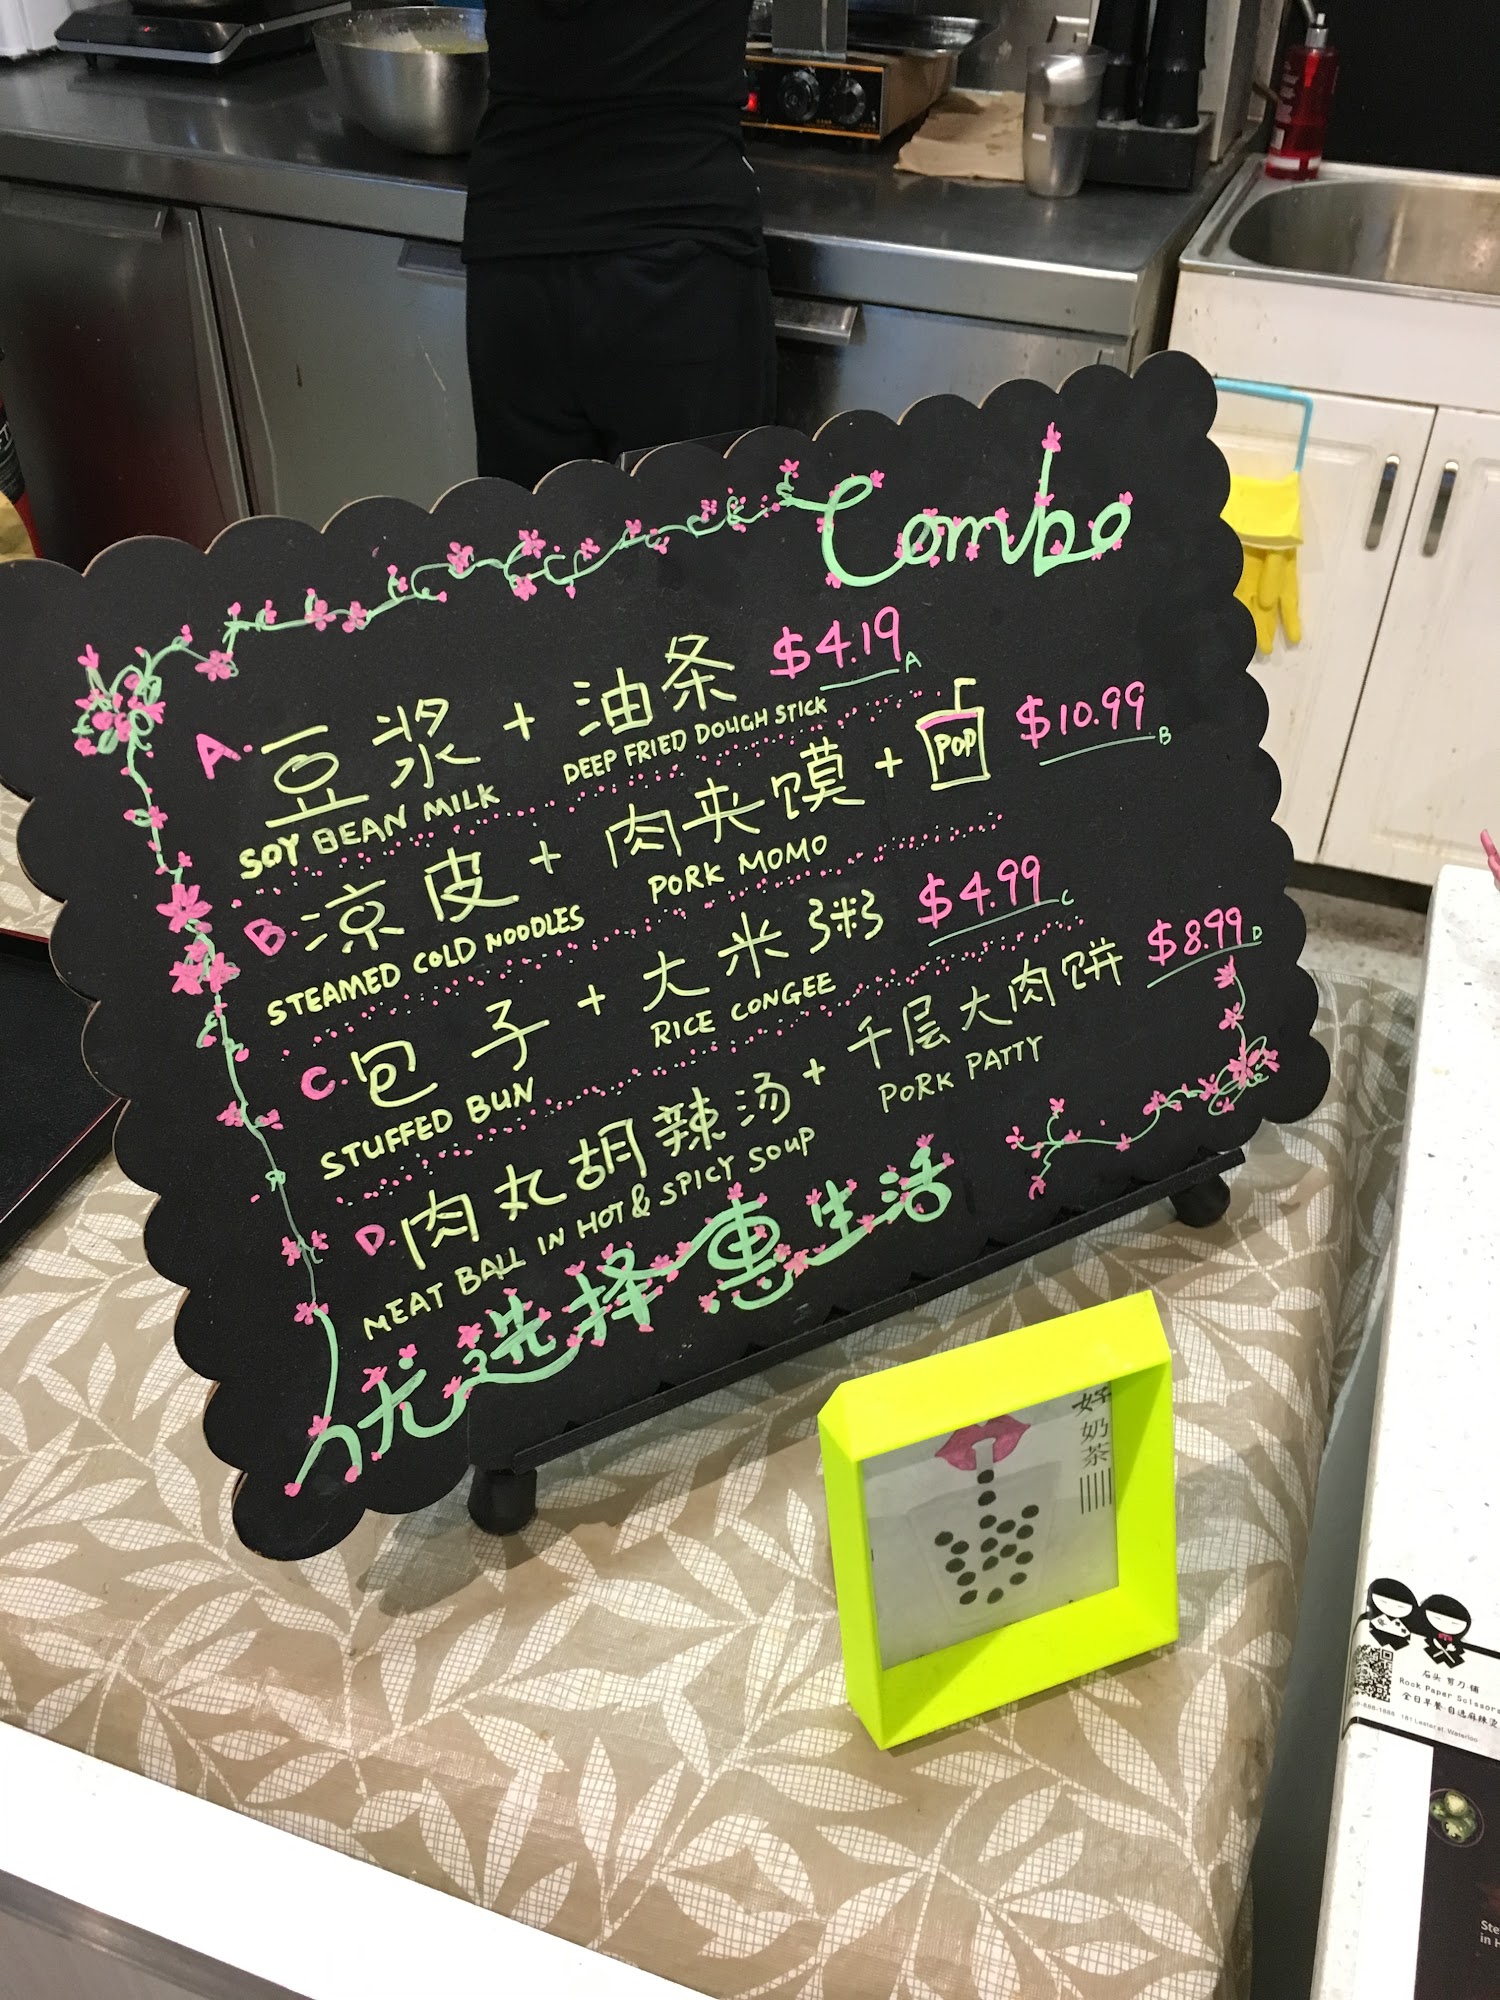 Combo
A. 豆浆 + 油条 $4.19 A
SOY BEAN MILK DEEP FRIED DOUGH STICK
B. 凉皮 + 肉夹馍 + POP $10.99 B
STEAMED COLD NOODLES PORK MOMO
C. 包子 + 大米粥 $4.99 C
STUFFED BUN RICE CONGEE
D. 肉丸胡辣汤 + 千层大肉饼 $8.99 D
MEAT BALL IN HOT & SPICY SOUP PORK PATTY
优选择 惠生活
好奶茶
石头剪刀铺
Rock Paper Scissors
全日早餐 自选麻辣烫